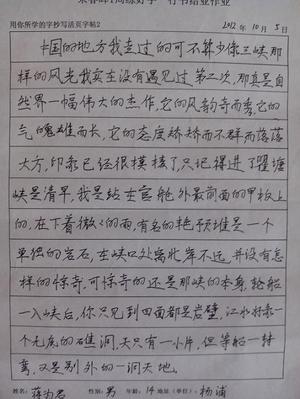 用你所学的字抄写活页字帖2 2012年10月5日
中国的地方我走过的可不算少像三峡那
样的风光我实在没有遇见过第二次，那真是自
然界一幅伟大的杰作，它的风韵奇而秀，它的
气魄雄而长，它的态度矫矫而不群而落落
大方，印象已经很模糊了，只记得进了瞿塘
峡是清早，我是站在官舱外最前面的甲板上
的，在下着微微的雨，有名的艳预堆是一个
单独的岩石，在峡口处离北岸不远，并没有怎
样的惊奇，可惊奇的还是那峡的本身，轮船
一入峡后，你只见到四面都是岩壁，江水好象一
个无底的礁洞，天只有一小片，但等船一转
弯，又是别外的一洞天地。
姓名： 性别：男 年龄：14 地址（单位）：杨浦